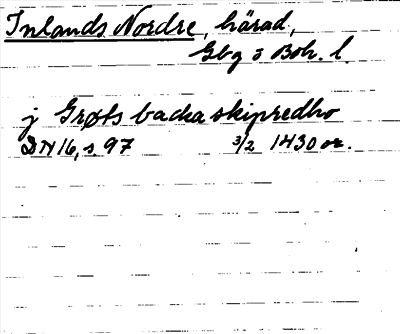 Inlands Nordre, härad,
Gbg o Boh. l.
j Grøts backa skipredho
DN 16, s. 97 3/2 1430 or.